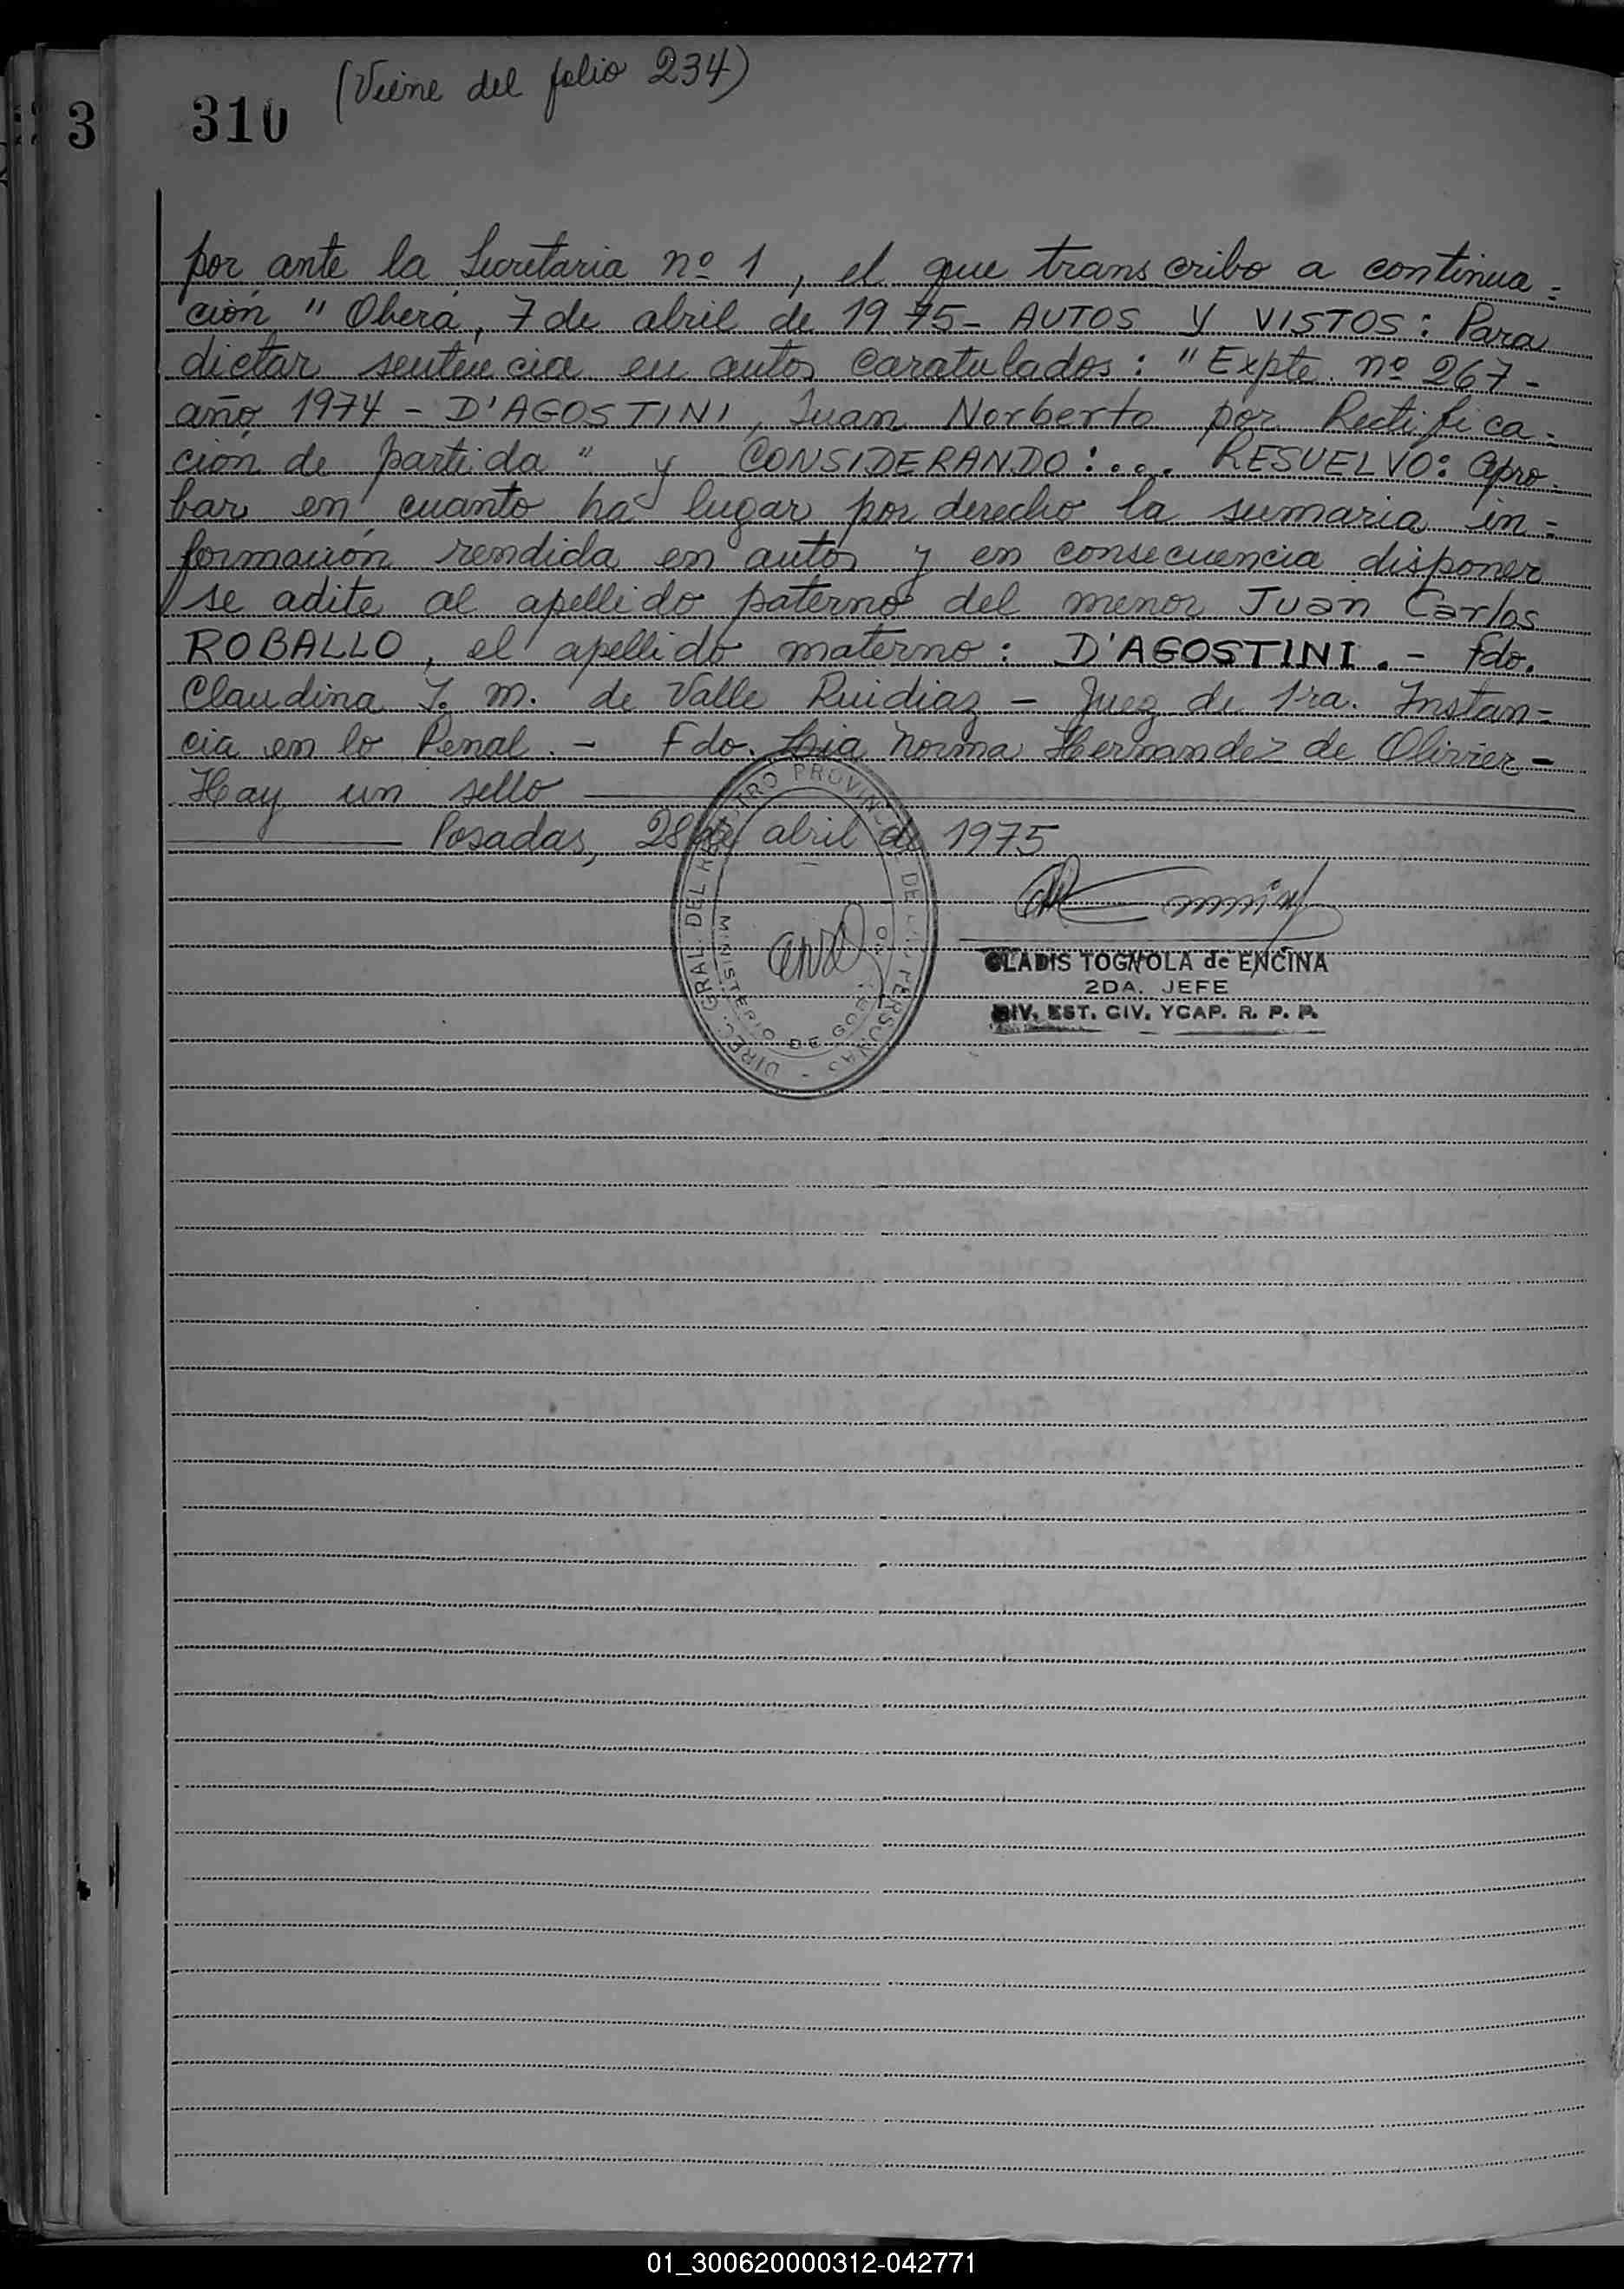 (Viene del folio 234)
3
310
por ante la Secretaria nº 1, el que transcribo a continua=
ción " Oberá, 7 de abril de 1975- AUTOS Y VISTOS: Para
dictar sentencia en autos caratulados: "Expte. nº 267-
año 1974 - D'AGOSTINI, Juan Norberto por Rectifica=
ción de partida " y CONSIDERANDO:... RESUELVO: Apro=
bar en cuanto ha lugar por derecho la sumaria in=
formación rendida en autos y en consecuencia disponer
se adite al apellido paterno del menor Juan Carlos
ROBALLO, el apellido materno: D'AGOSTINI.- Fdo.
Claudina I. M. de Valle Ruidiaz - Juez de 1ra. Instan=
cia en lo Penal.- Fdo. Lia Norma Hernandez de Olivier-
Hay un sello
Posadas, 28 de abril de 1975
DIREC. GRAL. DEL REGISTRO PROVINCIAL DE LAS PERSONAS -
MINISTERIO DE GOBIERNO
GLADIS TOGNOLA de ENCINA
2DA. JEFE
DIV. EST. CIV. YCAP. R. P. P.
01_300620000312-042771